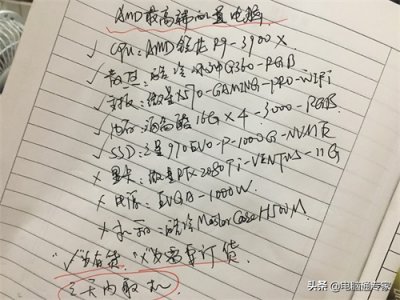 AMD最高端配置电脑
✓ CPU:AMD锐龙R9-3900X
✓ 散热:酷冷 G360-RGB
✓ 主板:微星X570-GAMING-PRO-WIFI
✓ 内存: 16G×4-3000-RGB
✓ SSD:三星970EVO-P-1000G-NVME
× 显卡:微星RTX2080Ti-VENTUS-11G
× 电源:EVGA-1000W
× 机箱:酷冷MasterCase H500M
"✓"为有货."×"为需要订货
三天内取机
头条@电脑通专家